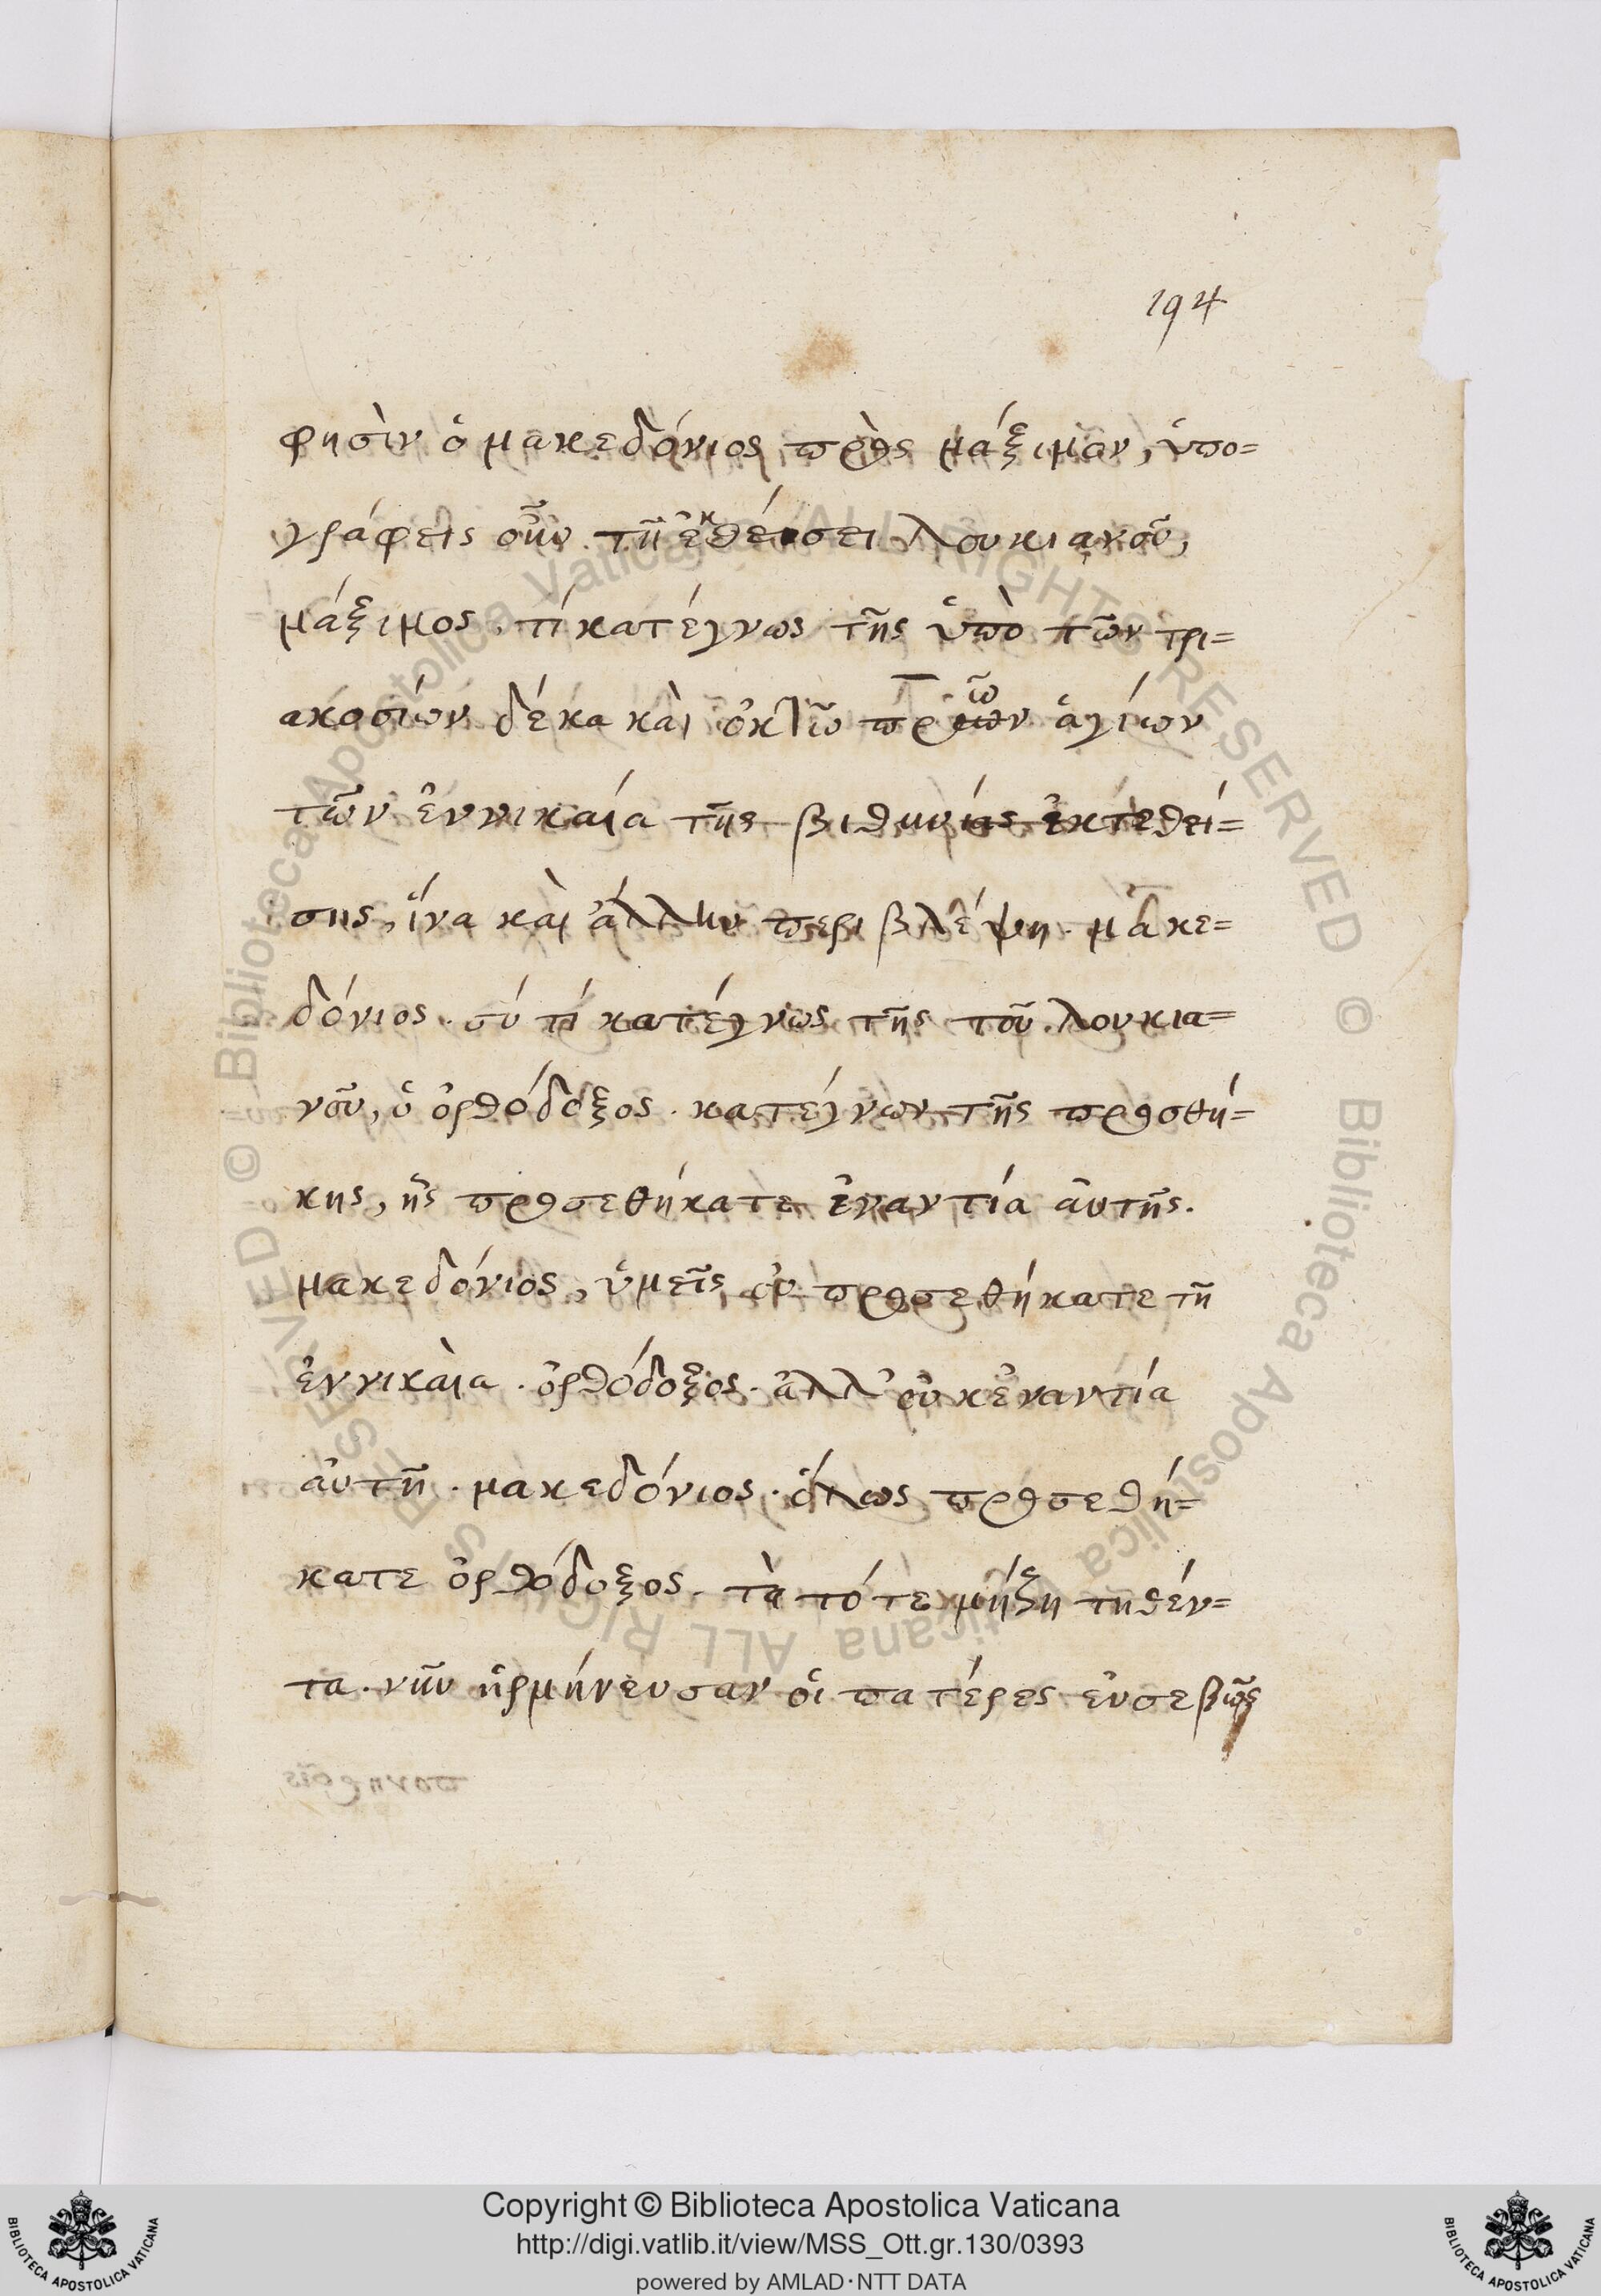 194
φησὶν ὁ μακεδόνιος πρὸς μάξιμον, ὑπο=
γράφεις οὖν τῆ ἐκθέσει λουκιανοῦ,
μάξιμος. τί κατέγνως τῆς ὑπὸ τῶν τρι=
ακοσίων δέκα καὶ ὀκτὼ π̅ρῶν ἁγίων
τῶν ἐννικαία τῆς βιθυνίας ἐκτεθεί=
σης, ἵνα καὶ ἄλλην περιβλέψη. μακε=
δόνιος. σύ τί κατέγνως τῆς τοῦ λουκια=
νοῦ, ὁ ὀρθόδοξος. κατέγνων τῆς προσθή=
κης, ἧς προσεθήκατε ἐναντία αὐτῆς.
μακεδόνιος, ὑμεῖς οὐ προσεθήκατε τῆ
ἐννικαὶα. ὀρθόδοξος. ἀλλ' οὐκ ἐναντία
αὐτῆ. μακεδόνιος. ὅλως προσεθή=
κατε ὀρθόδοξος. τὰ τότε μὴζητηθέν=
τα. νῦν ἡρμήνευσαν οἱ πατέρες εὐσεβῶς
Copyright © Biblioteca Apostolica Vaticana
http://digi.vatlib.it/view/MSS_Ott.gr.130/0393
powered by AMLAD·NTT DATA
BIBLIOTECA APOSTOLICA VATICANA
BIBLIOTECA APOSTOLICA VATICANA